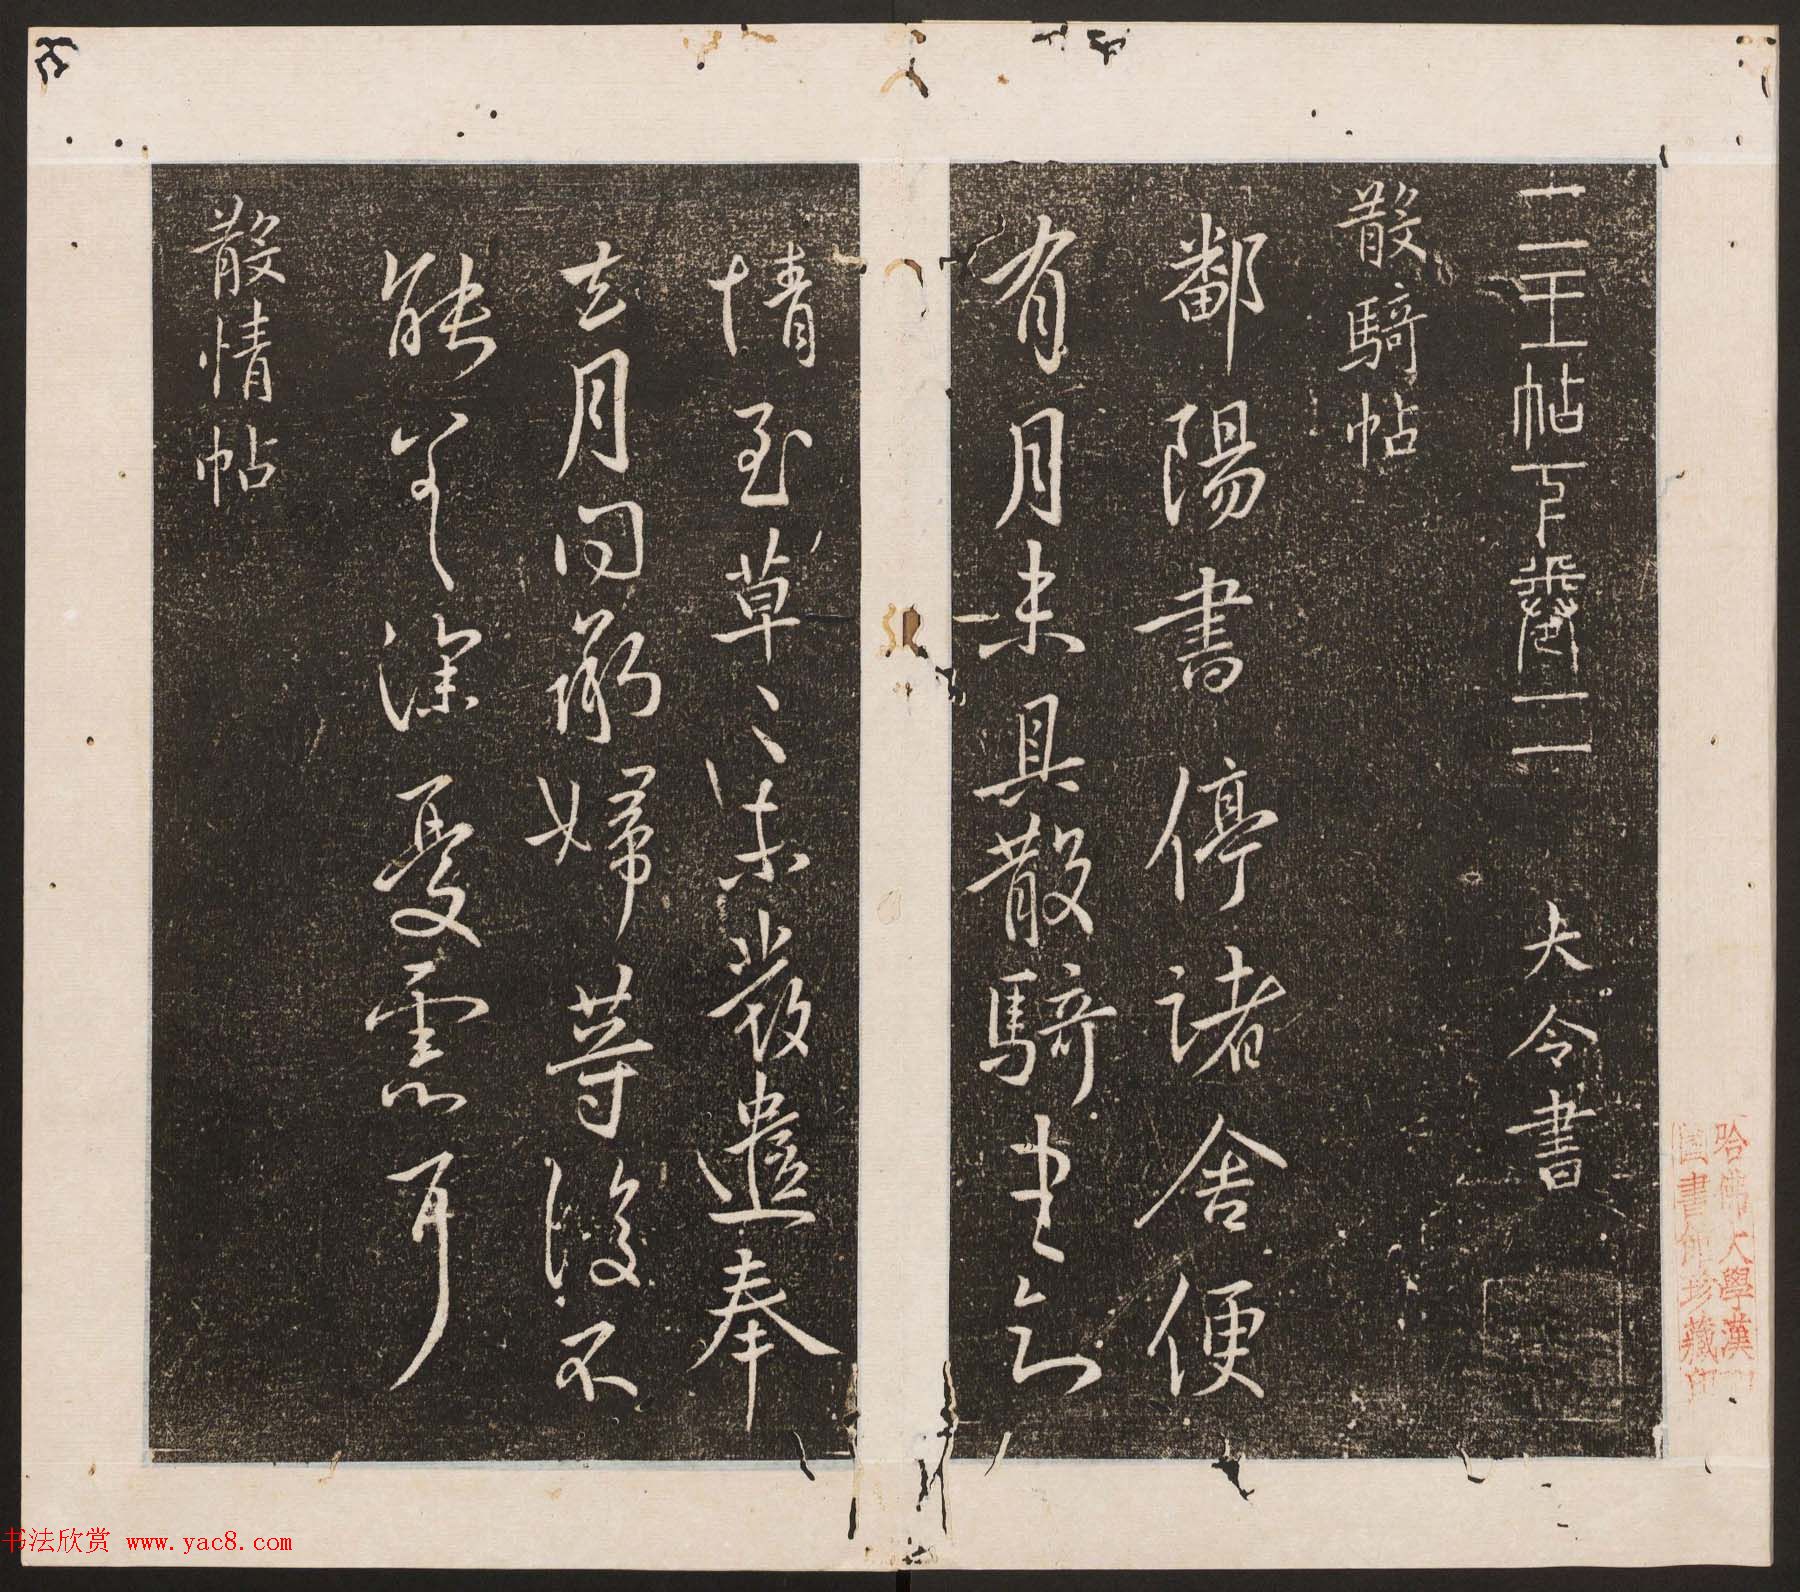 二王帖下卷二 大令書
散騎帖
鄱陽書停諸舍便
有月未具散騎
情至草〻未發遣奉
去月問承婦等復不
能差深憂懸耳
散情帖
哈佛大學漢和
圖書館珍藏印
书法欣赏 www.yac8.com